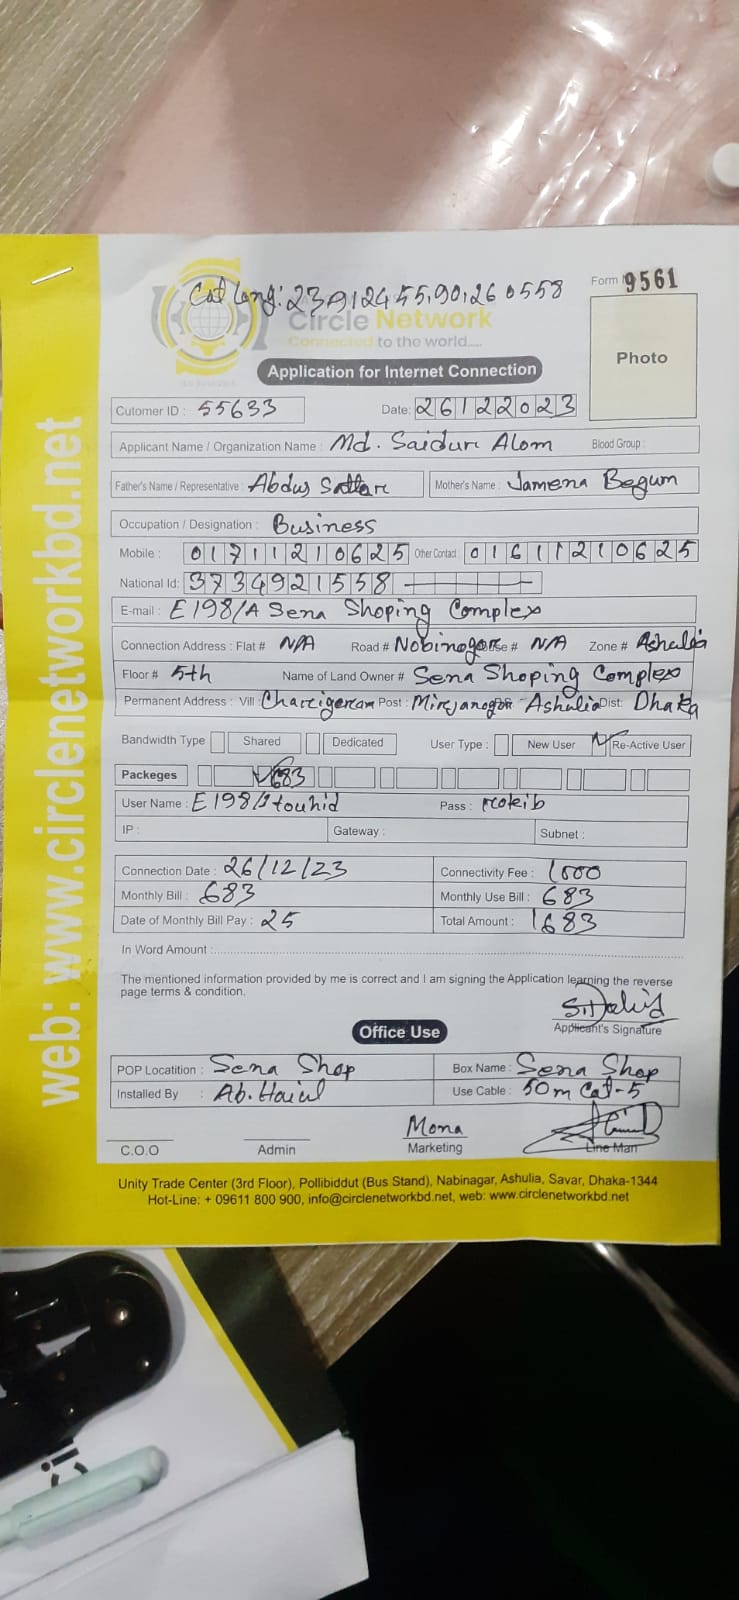 Form 9561
Cat Long: 23.912455,90.260558
Circle Network
Connected to the world.....
Photo
Application for Internet Connection
Cutomer ID : 55633 Date: 26122023
Applicant Name / Organization Name : Md. Saidur Alom Blood Group :
Father's Name / Representative : Abdus Sattar Mother's Name : Jamena Begum
Occupation / Designation : Business
Mobile : 01711210625 Other Contact : 01611210625
National Id: 3734921558
E-mail : E198/A Sena Shoping Complex
Connection Address : Flat # N/A Road # Nobinogor House # N/A Zone # Ashulia
Floor # 5th Name of Land Owner # Sena Shoping Complex
Permanent Address : Vill : Charigram Post : Mirjanogor Ashulia Dist: Dhaka
Bandwidth Type Shared Dedicated User Type : New User Re-Active User
Packeges 683
User Name : E198/ touhid Pass : rokib
IP : Gateway : Subnet :
Connection Date : 26/12/23 Connectivity Fee : 1000
Monthly Bill : 683 Monthly Use Bill : 683
Date of Monthly Bill Pay : 25 Total Amount : 1683
In Word Amount :
The mentioned information provided by me is correct and I am signing the Application learning the reverse
page terms & condition.
Applicant's Signature
Office Use
POP Locatition : Sena Shop Box Name : Sena Shop
Installed By : Ab. Use Cable : 50m Cat-5
Mona
C.O.O Admin Marketing Line Man
Unity Trade Center (3rd Floor), Pollibiddut (Bus Stand), Nabinagar, Ashulia, Savar, Dhaka-1344
Hot-Line: + 09611 800 900, info@circlenetworkbd.net, web: www.circlenetworkbd.net
web: www.circlenetworkbd.net